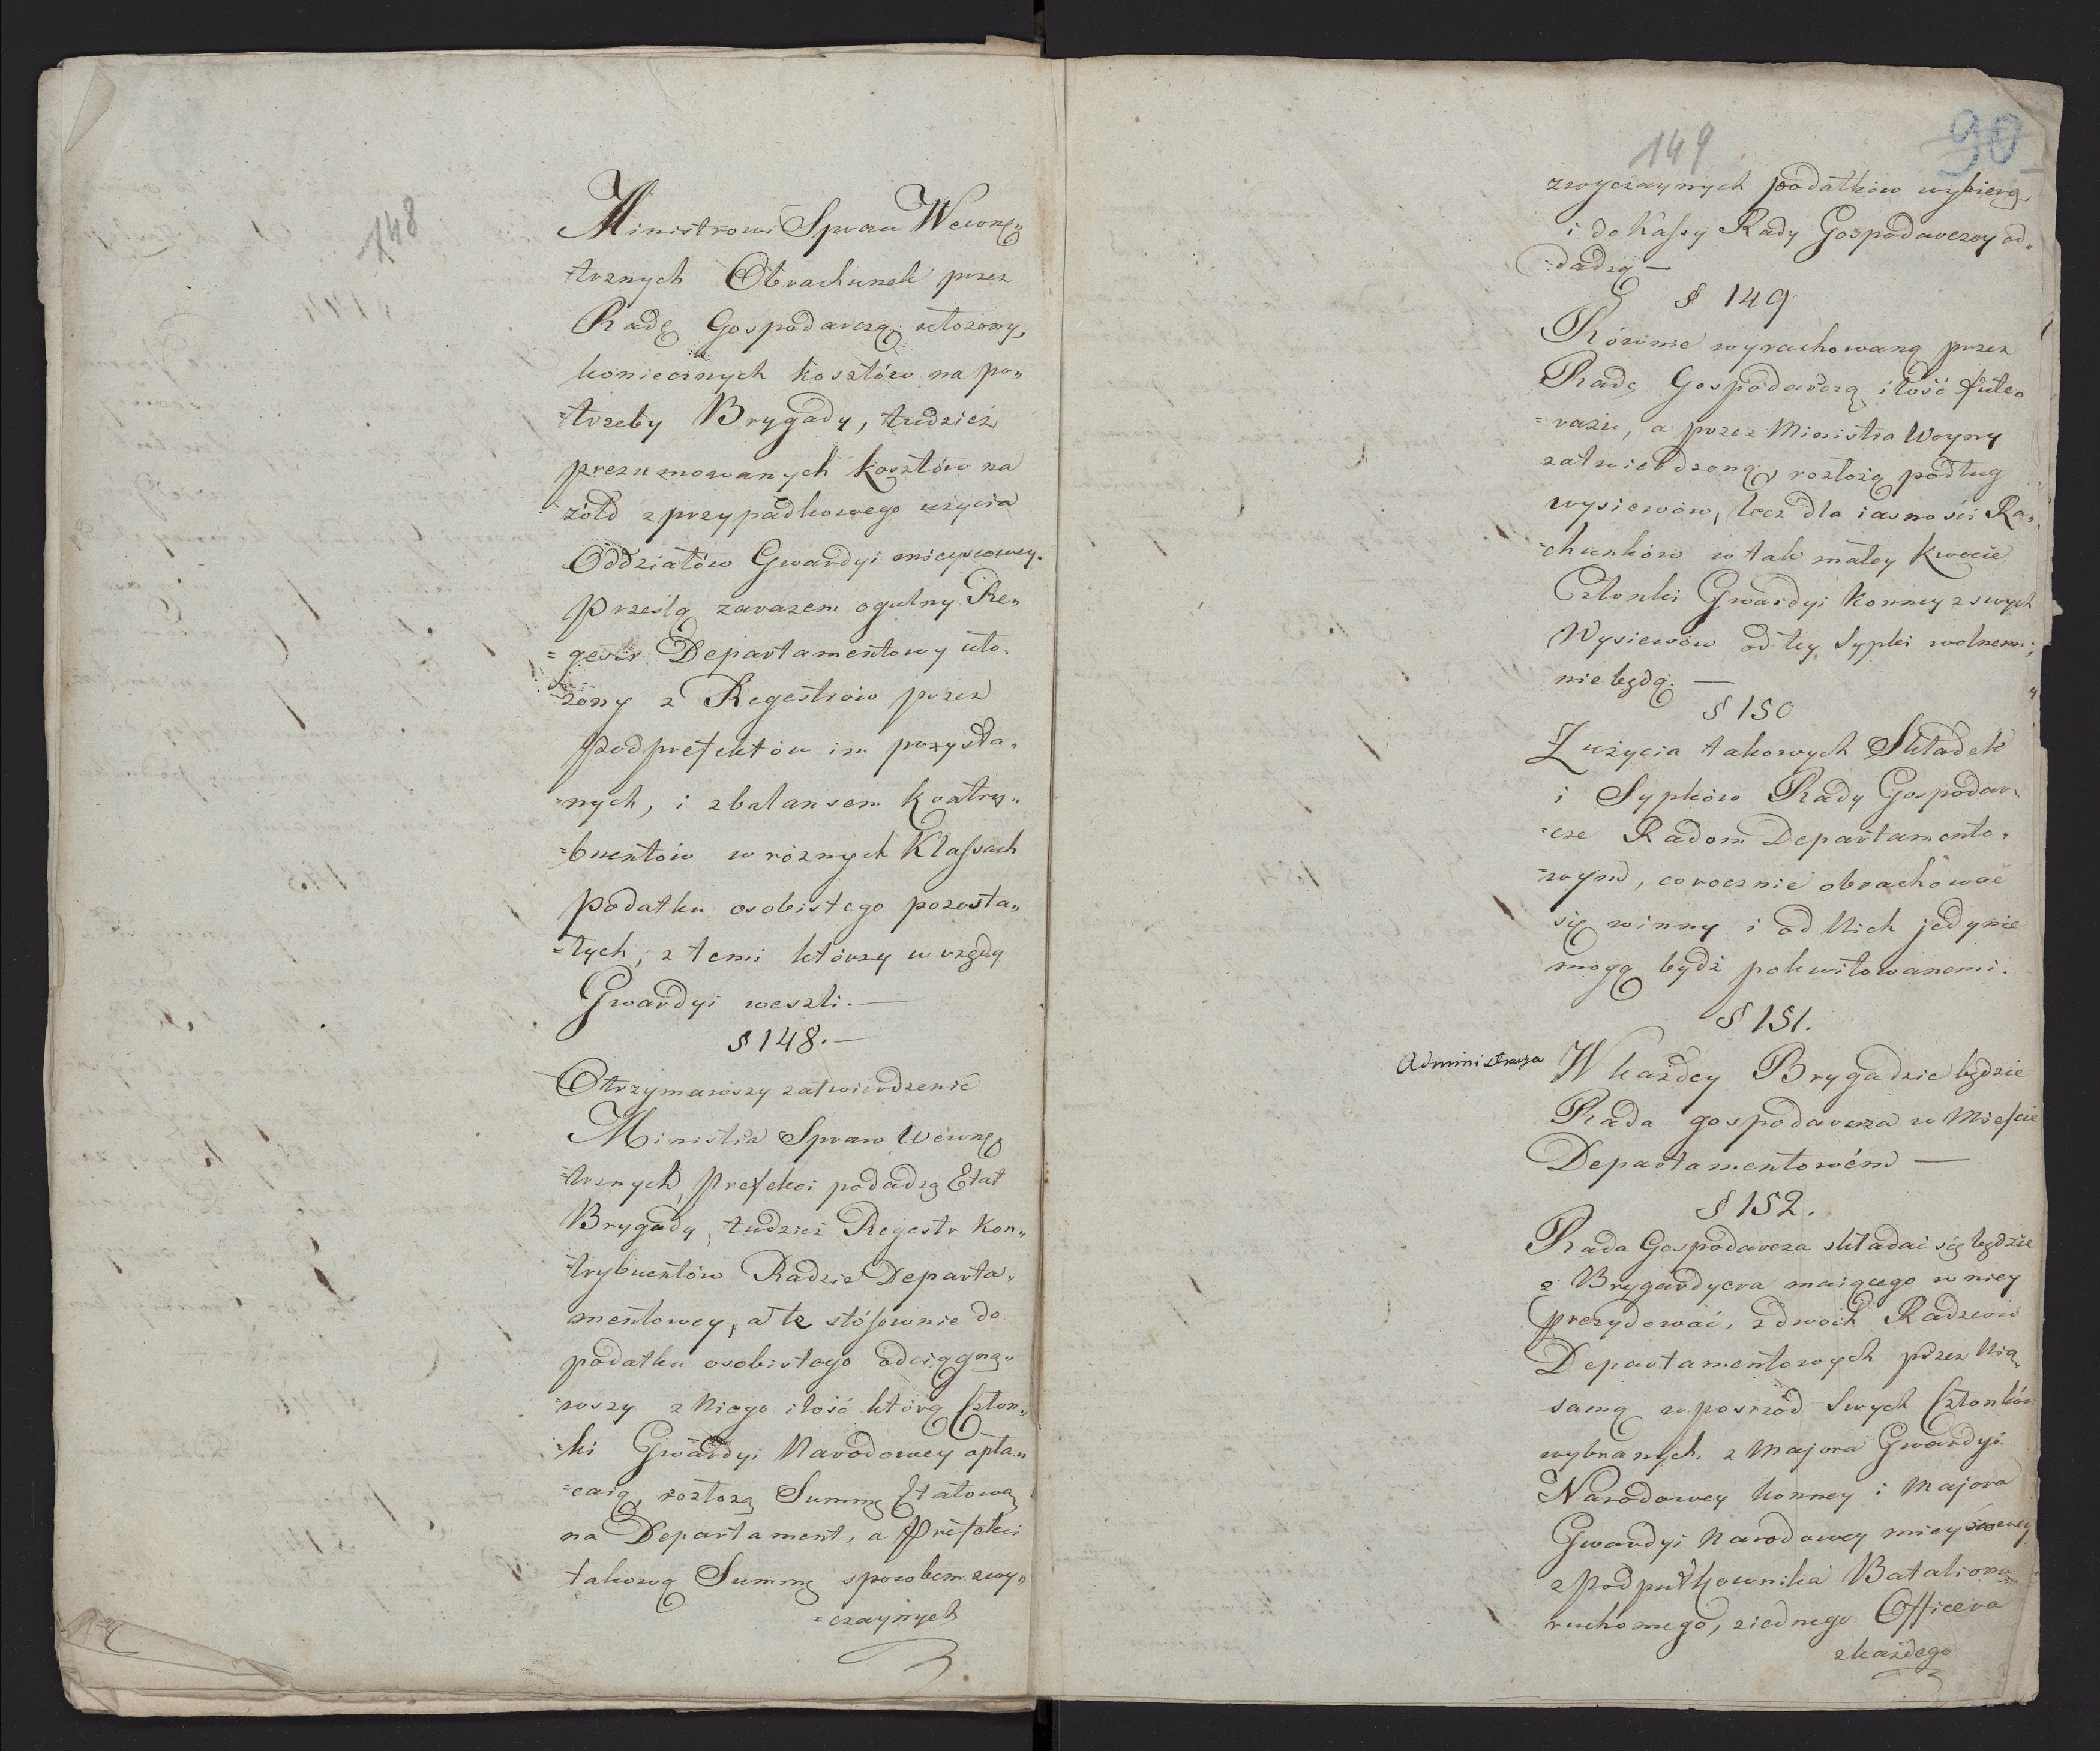 148
Ministrowi Spraw Wewnę„
=trznych Obrachunek przez
Radę Gospodarczą ułożony,
koniecznych kosztów na po„
=trzeby Brygady, tudzież
prezumowanych kosztów na
żołd z przypadkowego użycia
Oddziałów Gwardyi mieyscowey.
Prześlą zarazem ogulny Re„
=gestr Departamentowy uło„
=żony z Regestrów przez
Podprefektów im przysła„
=nych, i zbalansem kontry„
=buentów w różnych Klassach
podatku osobistego pozosta„
=łych, z temi którzy w rzędy
Gwardyi weszli. —
§ 148. —
Otrzymawszy zatwierdzenie
Ministra Spraw Wewnę„
=trznych, Prefekci podadzą Etat
Brygady, tudzież Regestr kon„
=trybuentów Radzie Departa„
mentowey, a ta stósownie do
podatku osobistego odciągną„
=wszy z niego ilość którą Człon„
=ki Gwardyi Narodowey opła„
=caią, rozłożą Summę Etatową
na Departament, a Prefekci
takową Summę sposobem zwy„
=czaynych
149
90
zwyczaynych podatków wybiorą
i do Kassy Rady Gospodarczey od„
dadzą —
§ 149
Równie wyrachowaną przez
Radę Gospodarczą ilość fute„
=rażu, a przez Ministra Woyny
zatwierdzoną, rozłożą podług
wysiewów, lecz dla iasności Ra„
=chunków w tak małey kwocie
Członki Gwardyi Konney z swych
Wysiewów od tey Sypki wolnemi
nie będą. —
§ 150
Z użycia takowych Składek
i Sypków Rady Gospodar„
=cze Radom Departamento„
=wym, corocznie obrachować
się winny i od Nich jedynie
mogą bydź pokwitowanemi.
§ 151.
Administracya
W każdey Brygadzie będzie
Rada gospodarcza w Mieście
Departamentowém —
§ 152.
Rada Gospodarcza składać się będzie
z Brygardyera maiącego w niey
prezydować, z dwóch Radzców
Departamentowych przez Nią
samą w pośrzód Swych Członków
wybranych, z Majora Gwardyi
Narodowey konney i Majora
Gwardyi Narodowey mieyscowey
z Podpułkownika Batalionu
ruchomego, ziednego Officera
zkażdego